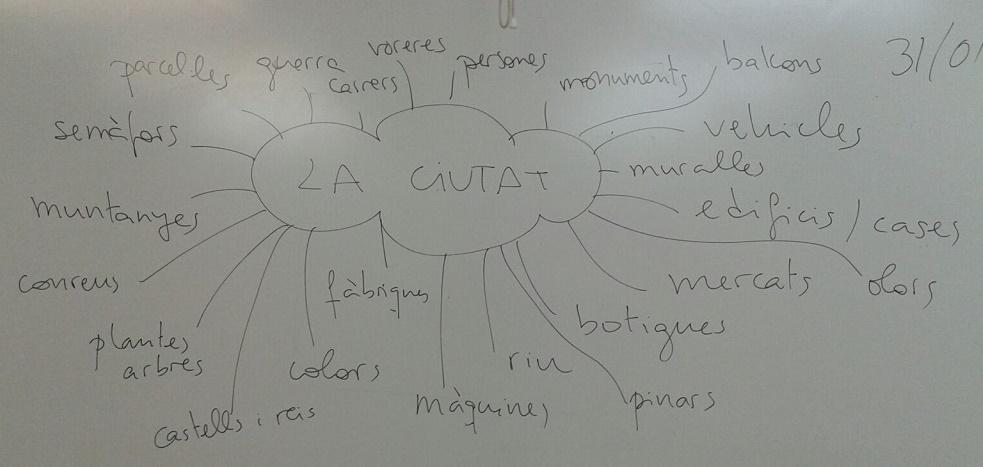 voreres
parcel·les guerra carrers persones monuments balcons 31/01
semàfors vehicles
LA CiUTAT muralles
muntanyes edificis / cases
conreus fàbriques mercats olors
plantes botigues
arbres colors riu
castells i reis màquines pinars